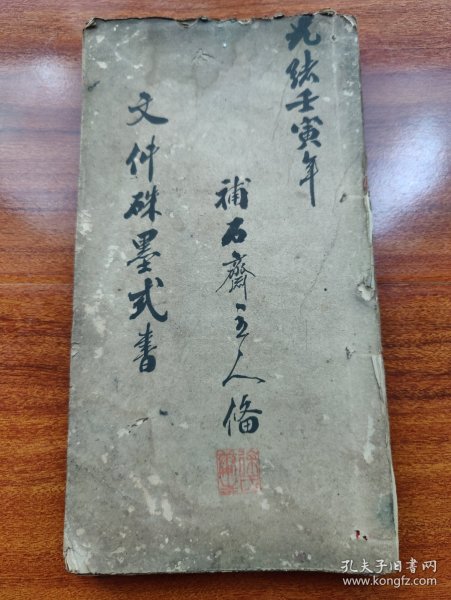 光绪壬寅年
補石齋主人偹
文件硃墨式書
孔夫子旧书网
www.kongfz.com